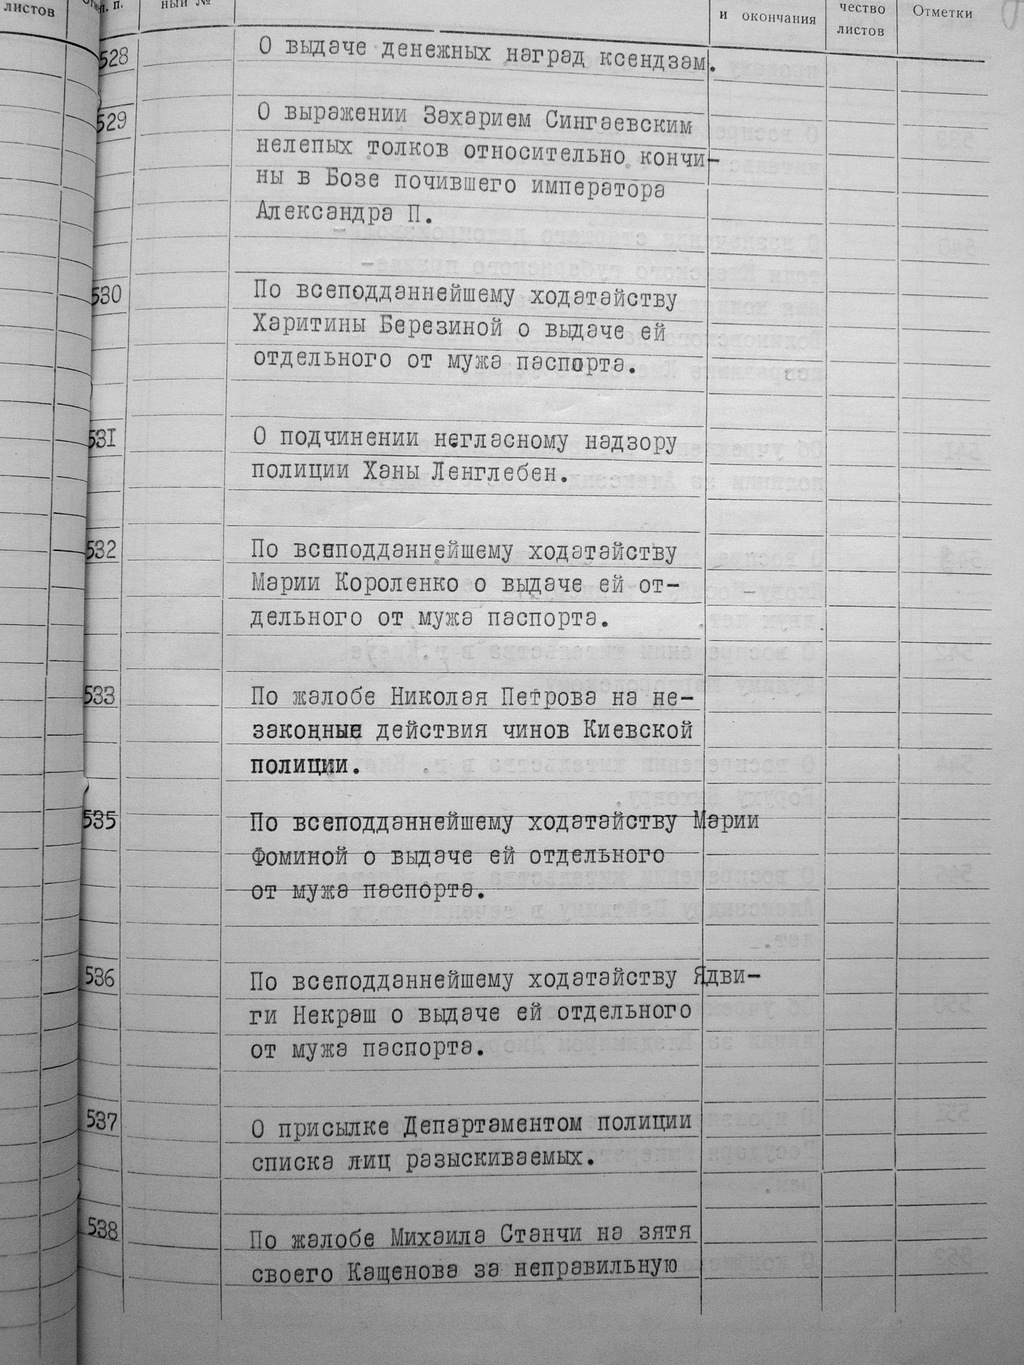 листов
п. п.
ный №
и окончания
чество
листов
Отметки
528
О выдаче денежных наград ксендзам.
529
О выражении Захарием Сингаевским
нелепых толков относительно кончи-
ны в Бозе почившего императора
Александра П.
530
По всеподданнейшему ходатайству
Харитины Березиной о выдаче ей
отдельного от мужа паспорта.
531
О подчинении негласному надзору
полиции Ханы Ленглебен.
532
По всеподданнейшему ходатайству
Марии Короленко о выдаче ей от-
дельного от мужа паспорта.
533
По жалобе Николая Петрова на не-
законные действия чинов Киевской
полиции.
535
По всеподданнейшему ходатайству Марии
Фоминой о выдаче ей отдельного
от мужа паспорта.
536
По всеподданнейшему ходатайству Ядви-
ги Некраш о выдаче ей отдельного
от мужа паспорта.
537
О присылке Департаментом полиции
списка лиц разыскиваемых.
538
По жалобе Михаила Станчи на зятя
своего Кащенова за неправильную